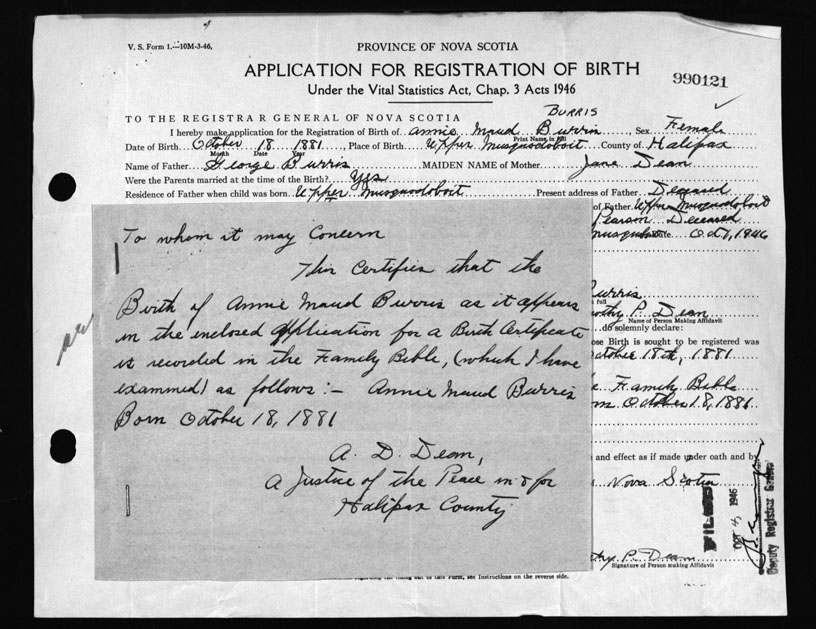 V. S. Form 1.—10M-3-46,
PROVINCE OF NOVA SCOTIA
APPLICATION FOR REGISTRATION OF BIRTH
990121
Under the Vital Statistics Act, Chap. 3 Acts 1946
BURRIS
TO THE REGISTRAR GENERAL OF NOVA SCOTIA
I hereby make application for the Registration of Birth of Annie Maud Burris, Sex Female
Print Name in full
Date of Birth October 18 1881, Place of Birth Upper Musquodoboit County of Halifax
Month Date Year
Name of Father George Burris MAIDEN NAME of Mother Jane Dean
Were the Parents married at the time of the Birth? Yes
Residence of Father when child was born Upper Musquodoboit Present address of Father Deceased
of Father Upper Musquodoboit
Pearson Deceased
Date Oct, 1946
To whom it may Concern
This Certifies that the
Birth of Annie Maud Burris as it appears
in the enclosed Application for a Birth Certificate
is recorded in the Family Bible, (which I have
examined) as follows:— Annie Maud Burris
Born October 18, 1881
A. D. Dean,
A Justice of the Peace in & for
Halifax County
Burris
full
othy P. Dean
Name of Person Making Affidavit
do solemnly declare:
ose Birth is sought to be registered was
October 18th, 1881
Family Bible
October 18, 1881
and effect as if made under oath and by
Nova Scotia
FILED
OCT 1946
Deputy Registrar General
thy P. Dean
Signature of Person making Affidavit
out of this Form, see Instructions on the reverse side.